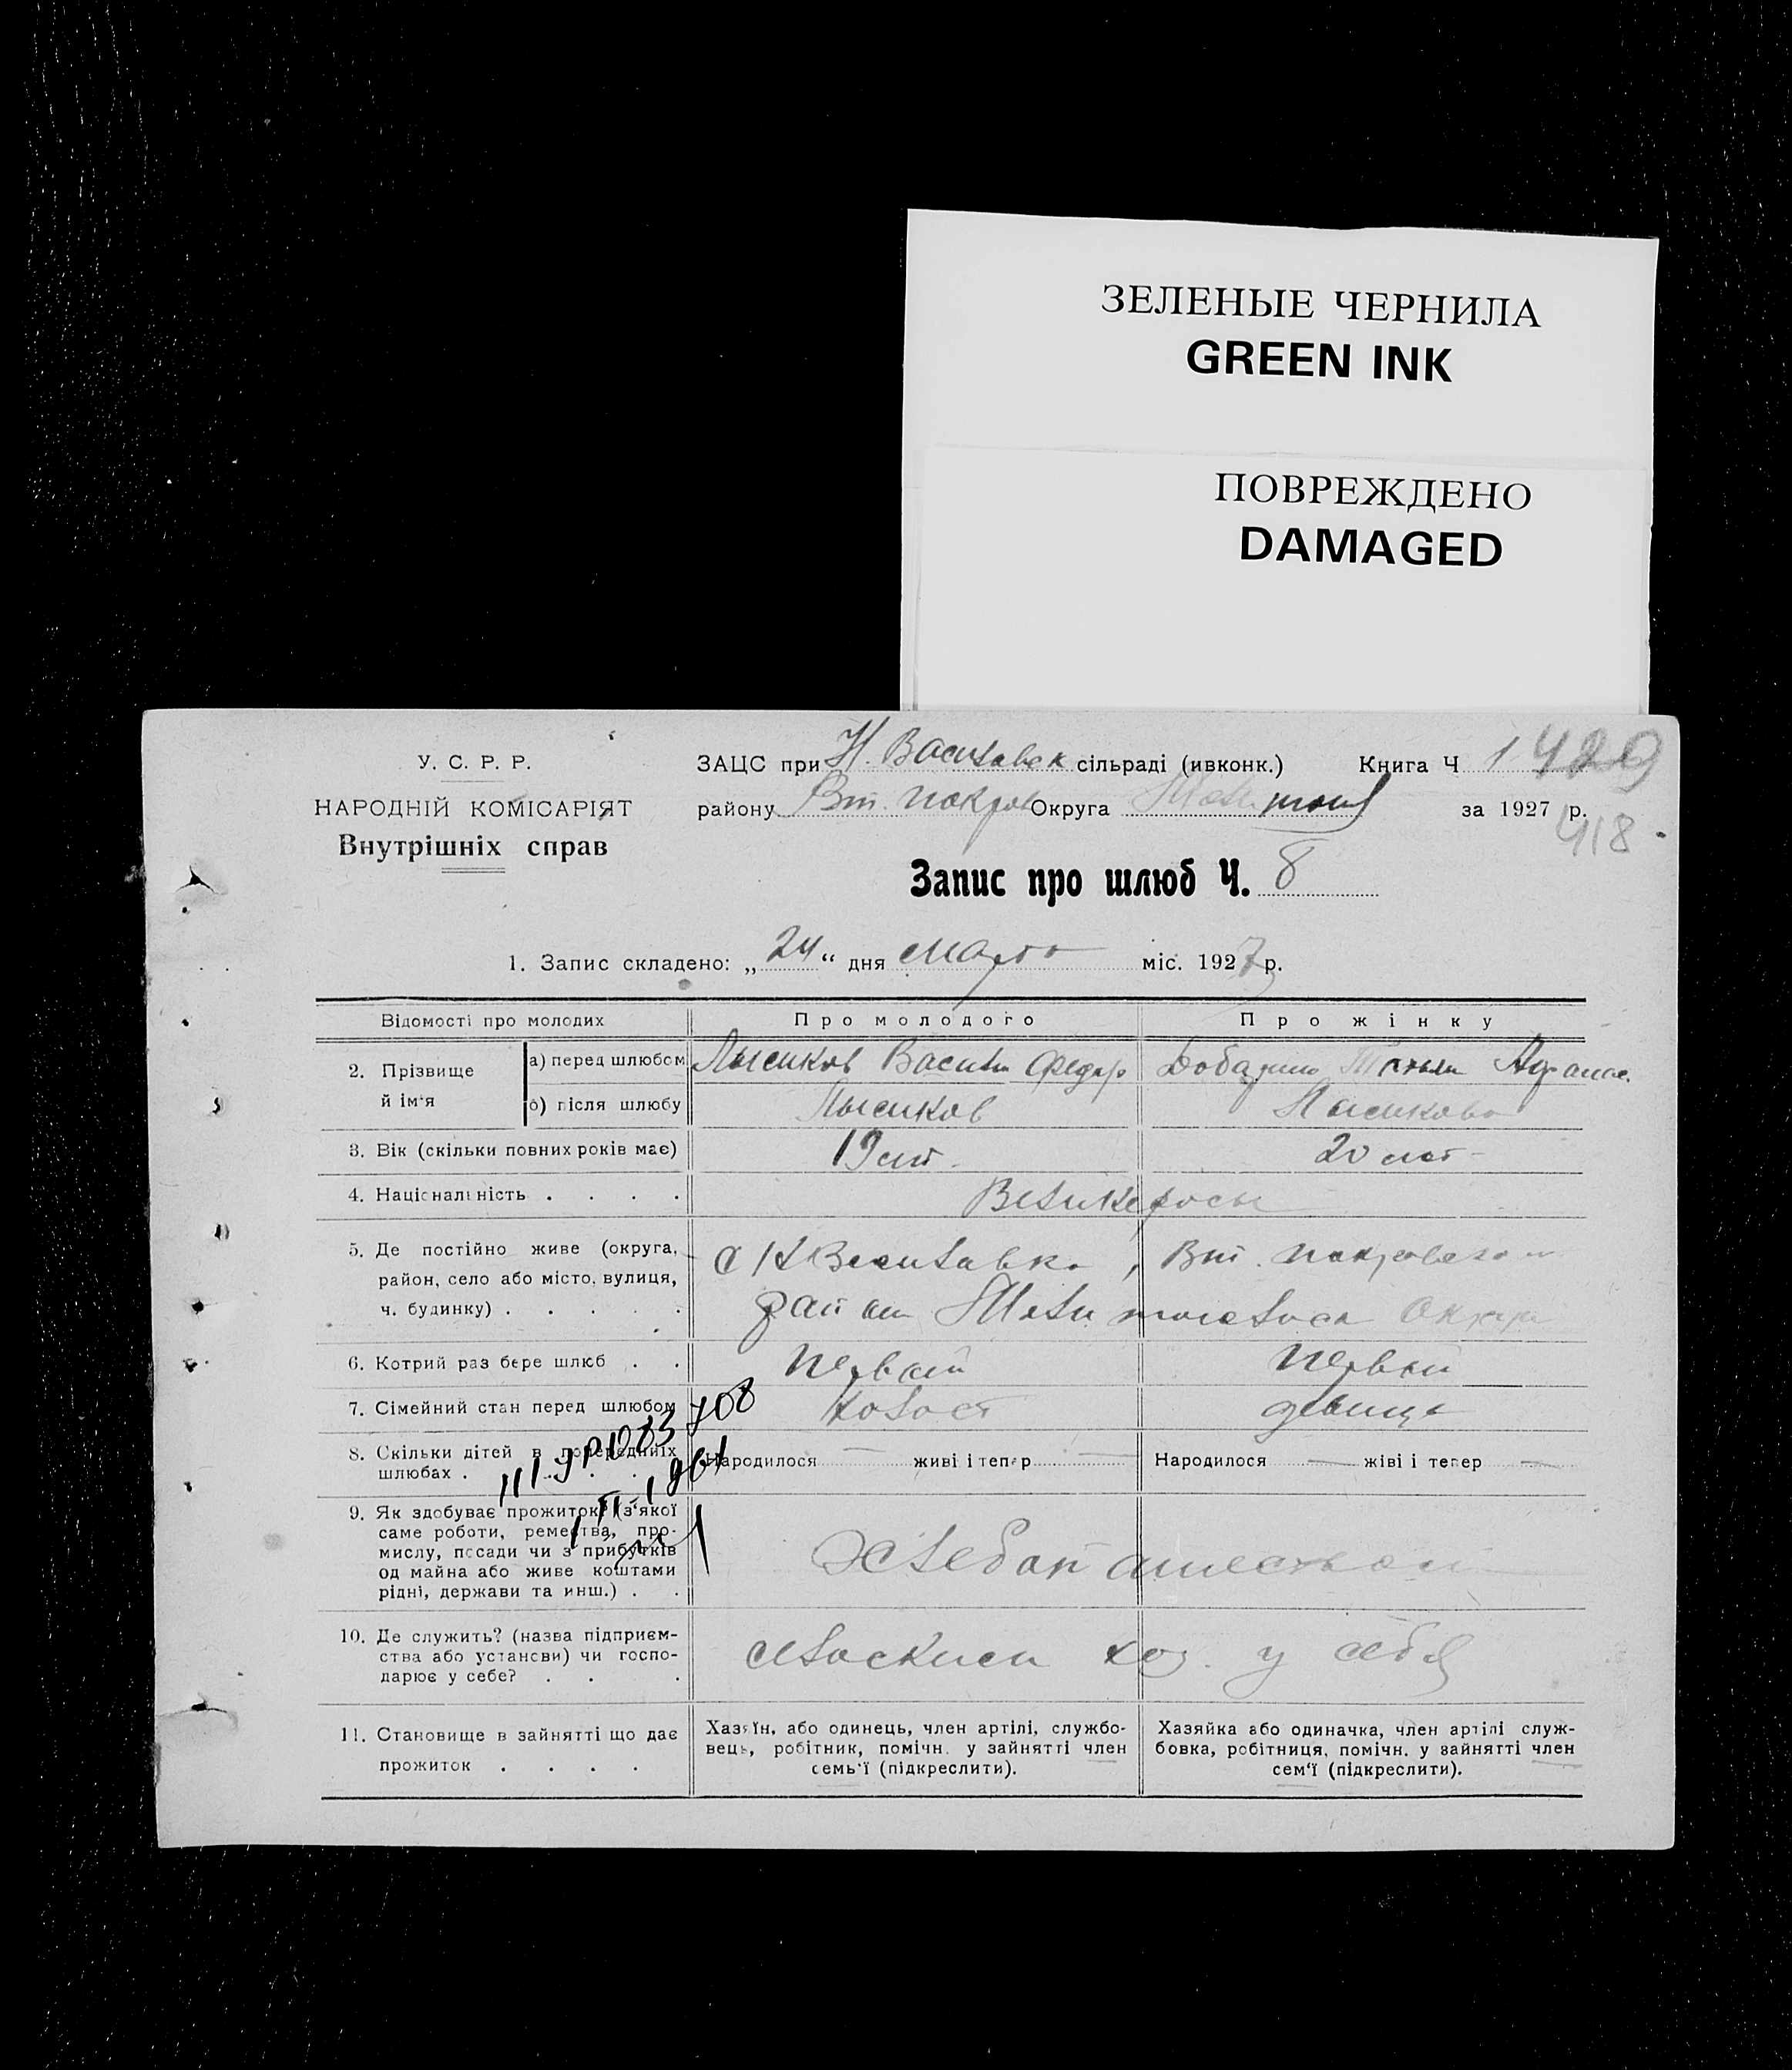 ЗЕЛЕНЫЕ ЧЕРНИЛА
GREEN INK
ПОВРЕЖДЕНО
DAMAGED
У. С. Р. Р.
НАРОДНІЙ КОМІСАРІЯТ
Внутрішніх справ
ЗАЦС при Н. Васильевск сільраді (ивконк.) Книга Ч 1 429
району Вт. Покров Округа за 1927 р.
418
Запис про шлюб Ч. 8
1. Запис складено: „24“ дня марта міс. 1927 р.
Відомості про молодих Про молодого Про жінку
2. Прізвище й ім'я а) перед шлюбом Лысиков Васили Федор Татьян Афанас.
б) після шлюбу Лысиков Лысикова
3. Вік (скільки повних років має) 19 лет 20 лет
4. Національність . . . . Великоросы
5. Де постійно живе (округа, с Н Васильевка, Вт. Покровского
район, село або місто, вулиця, район Округи
ч. будинку) . . . . .
6. Котрий раз бере шлюб . . Первый Первый
7. Сімейний стан перед шлюбом холост девица
8. Скільки дітей в попередніїх Народилося — живі і тепер — Народилося — жіві і тепер —
шлюбах .
9. Як здобуває прожиток? (з якої
саме роботи, ремества, про-
мислу, посади чи з прибутків Хлебопашеством
од майна або живе коштами
рідні, держави та инш.) . .
10. Де служить? (назва підприєм-
ства або установи) чи госпо- сельскием хоз. у себя
дарює у себе? . . .
11. Становище в зайнятті що дає Хазяїн, або одинець, член артілі, службо- Хазяйка або одиначка, член артілі служ-
вець, робітник, помічн. у зайнятті член бовка, робітниця, помічн. у зайнятті член
прожиток . . . . семь'ї (підкреслити). сем'ї (підкреслити).